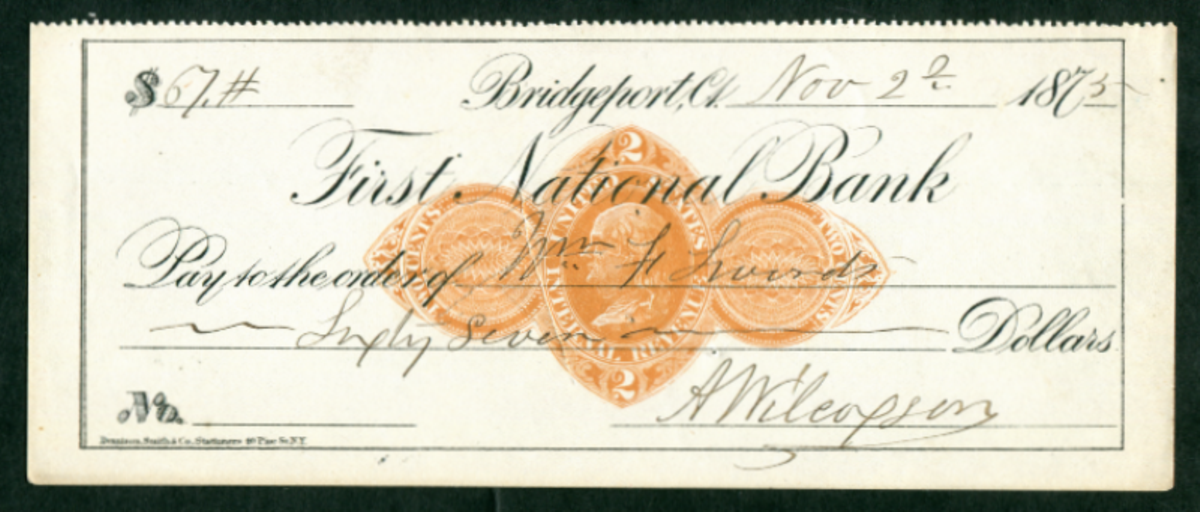 $ 67.#
Bridgeport, Ct. Nov 2 1875
First National Bank
2
UNITED STATES
INTERNAL REVENUE
2
Pay to the order of Wm F
Sixty Seven Dollars
No.
A Wilcoxson
Dennison, Smith & Co., Stationers Pine St. N.Y.